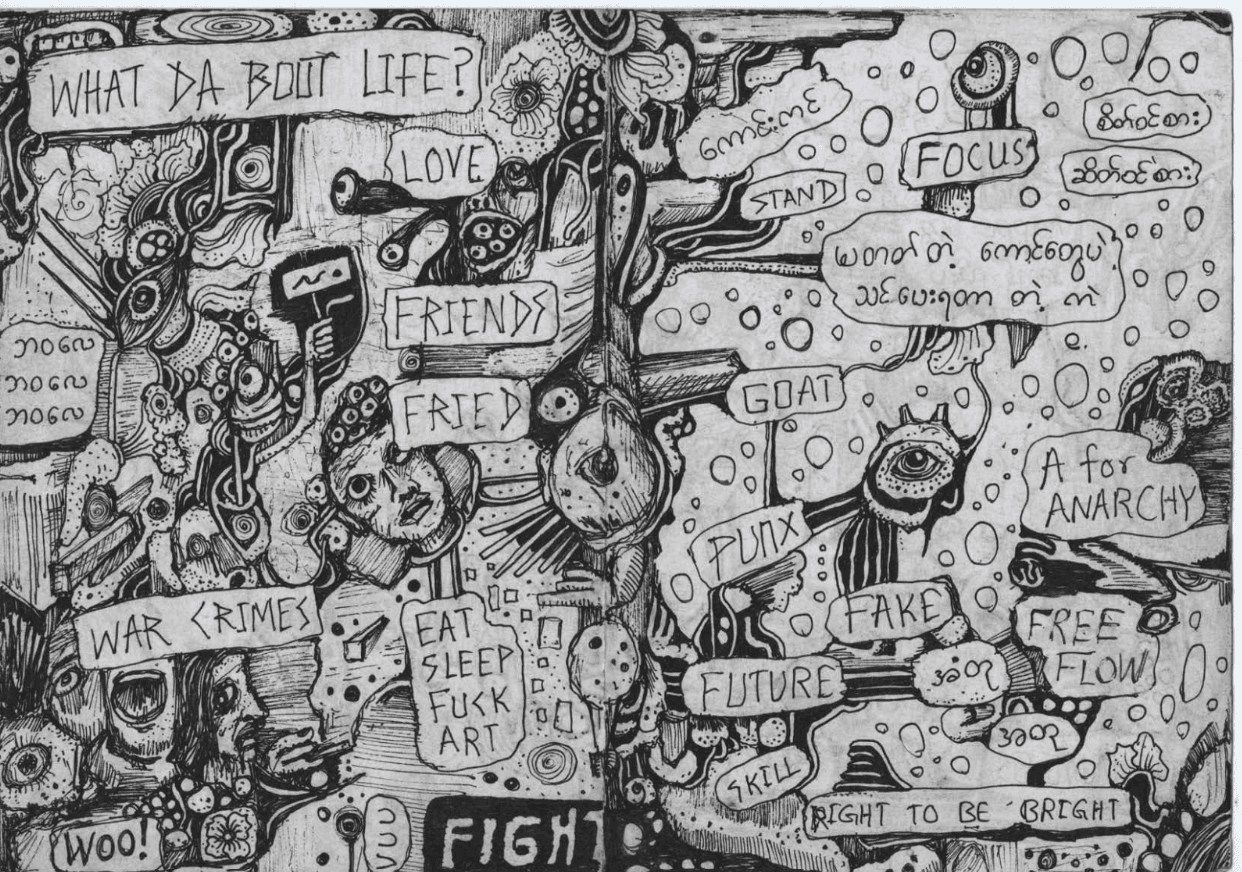 WHAT DA BOUT LIFE?
LOVE
FRIENDS
FRIED
ဘဝလေ
ဘဝလေ
ဘဝလေ
WAR CRIMES
EAT
SLEEP
FUCK
ART
WOO!
FIGHT
ကောင်းကင်
STAND
FOCUS
စိတ်ဝင်စား
ဆိတ်ဝင်စား
GOAT
A for
ANARCHY
PUNX
FAKE
FREE
FLOW
FUTURE
အတု
SKILL
RIGHT TO BE BRIGHT